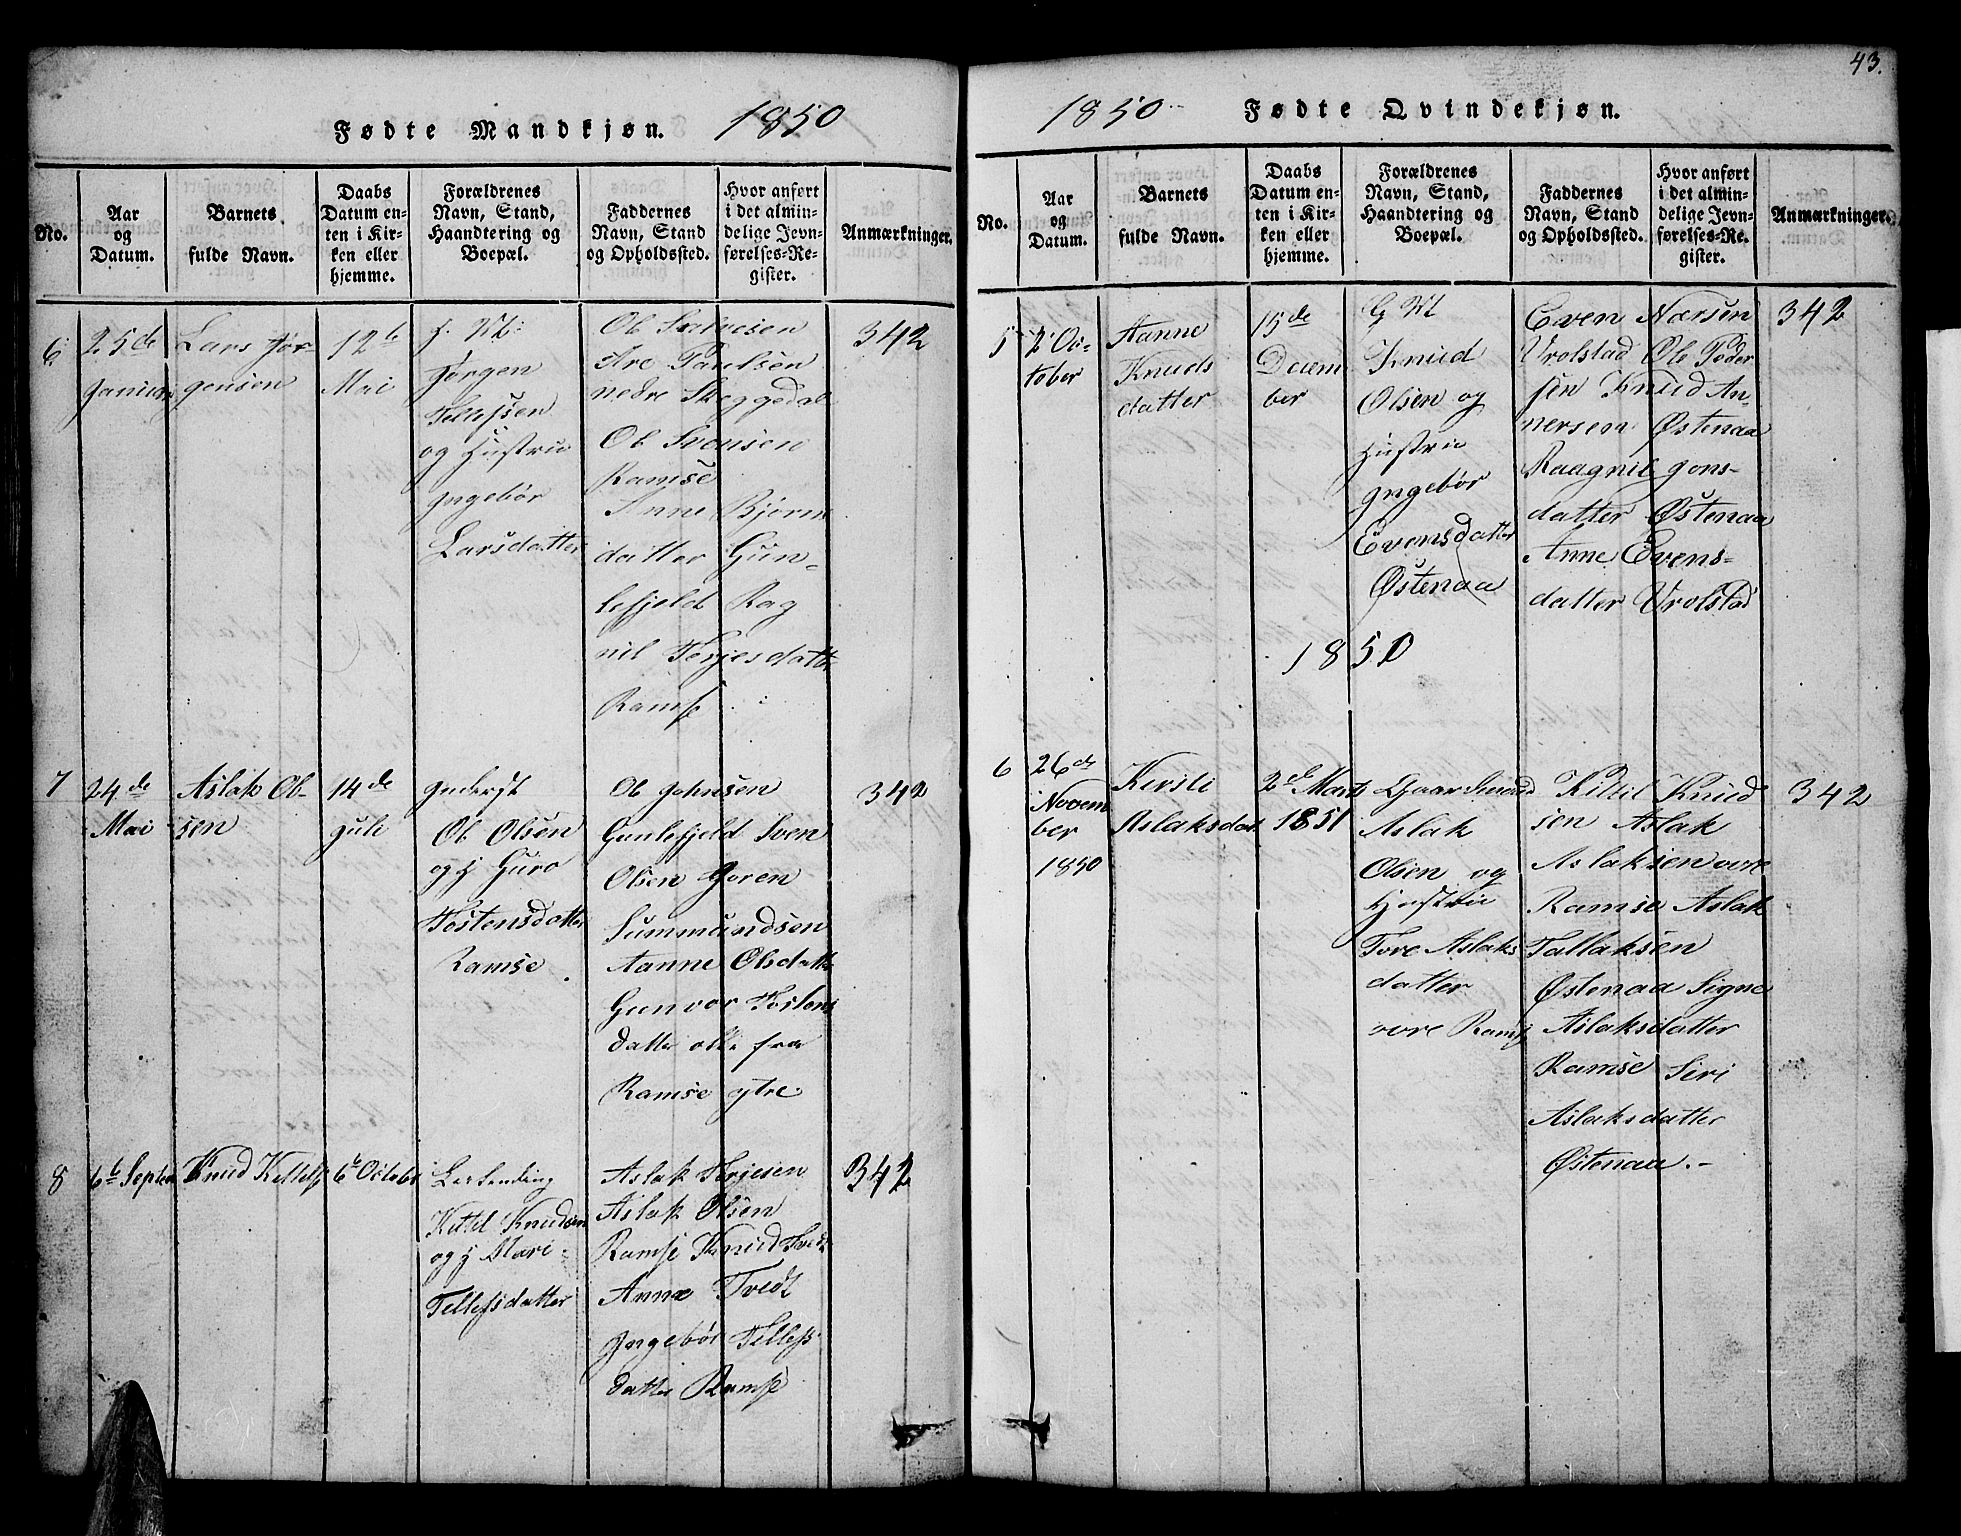 Fødte Mandkjøn. 1850
No.
Aar
og
Datum.
Barnets
fulde Navn.
Daabs
Datum en-
ten i Kir-
ken eller
hjemme.
Forældrenes
Navn, Stand,
Haandtering og
Boepæl.
Faddernes
Navn, Stand
og Opholdssted.
Hvor anført
i det almin-
delige Jevn-
førelses-Re-
gister.
Anmærkninger.
6
25de
Januari
Lars Jør-
gensen
12te
Mai
Jørgen
Tellefsen
og Hustru
Ingebør
Larsdatter
Ob Salvesen
Are Paulsen
nedre Skeggedal
Ob Svensen
Ramse
Anne Bjørn
datter Gun-
lefjeld Rag
nil Terjesdatter
Ramse
342
7
24de
Mai
Aslak Ob-
sen
14de
Juli
Inderst
Ob Olsen
og H Guro
Tostensdatter
Ramse
Ob Johnsen
Gunlefjeld Sven
Olsen Goren
Summundsen
Aanne Olsdatter
Gunvor Tostens
datter alle fra
Ramse ytre
342
8
6te Septem
Knud Kettels
6te October
Kittel Knudsen
og H Mari
Tellefsdatter
Aslak Terjesen
Aslak Olsen
Ramse Knud Tvedt
Anne Tvedt
Ingebør Tellefs
datter Ramse
342
43.
1850 Fødte Qvindekjøn.
No.
Aar
og
Datum.
Barnets
fulde Navn.
Daabs
Datum en-
ten i Kir-
ken eller
hjemme.
Forældrenes
Navn, Stand,
Haandtering og
Boepæl.
Faddernes
Navn, Stand
og Opholdssted.
Hvor anført
i det almin-
delige Jevn-
førelses-Re-
gister.
Anmærkninger.
5
2 Oc-
tober
Aanne
Knuds
datter
15de
Decem
ber
Knud
Olsen og
Hustru
Ingebør
Evensdatter
Østenaa
Even Nærsen
Vrolstad Ole Peder
sen Knud An-
nersen Østenaa
Raagnil gons-
datter Østenaa
Anne Evens-
datter Vrolstad
342
1850
6
26de
Novem
ber
1850
Kersti
Aslaksdat
2de Marts
1851
Gaardmand
Aslak
Olsen og
Hustru
Tore Aslaks
datter
ovre Ramse
Kittil Knud
sen Aslak
Aslaksen ovre
Ramse Aslak
Tallaksen
Østenaa Signe
Aslaksdatter
Ramse Siri
Aslaksdatter
Østenaa.-
342